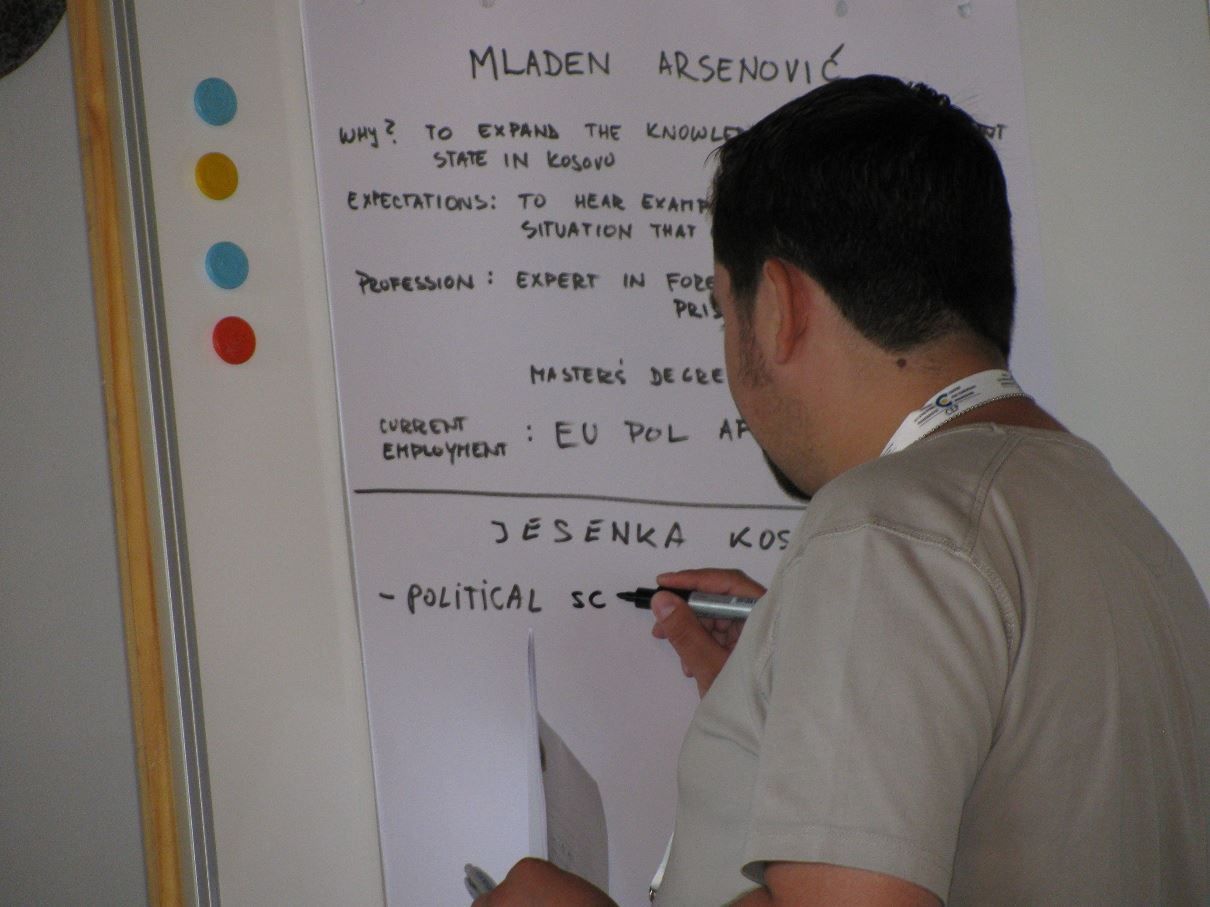 MLADEN ARSENOVIĆ
WHY? TO EXPAND THE
STATE IN KOSOVO
EXPECTATIONS: TO HEAR
SITUATION THAT
PROFESSION : EXPERT IN
MASTER'S
CURRENT
EMPLOYMENT : EU POL
JESENKA
- POLITICAL SC